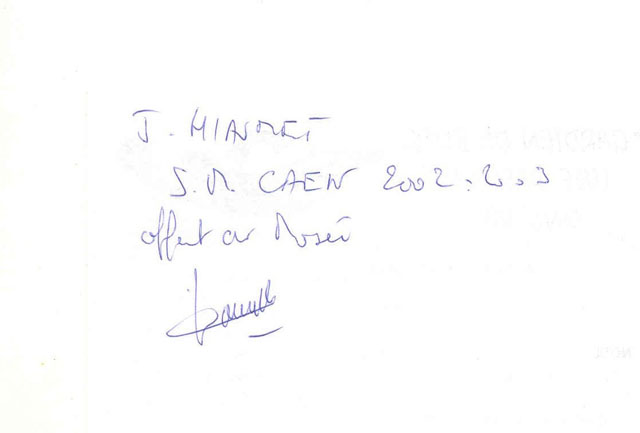 J. MIANNET
S.M. CAEN 2002.2003
offert au Musée